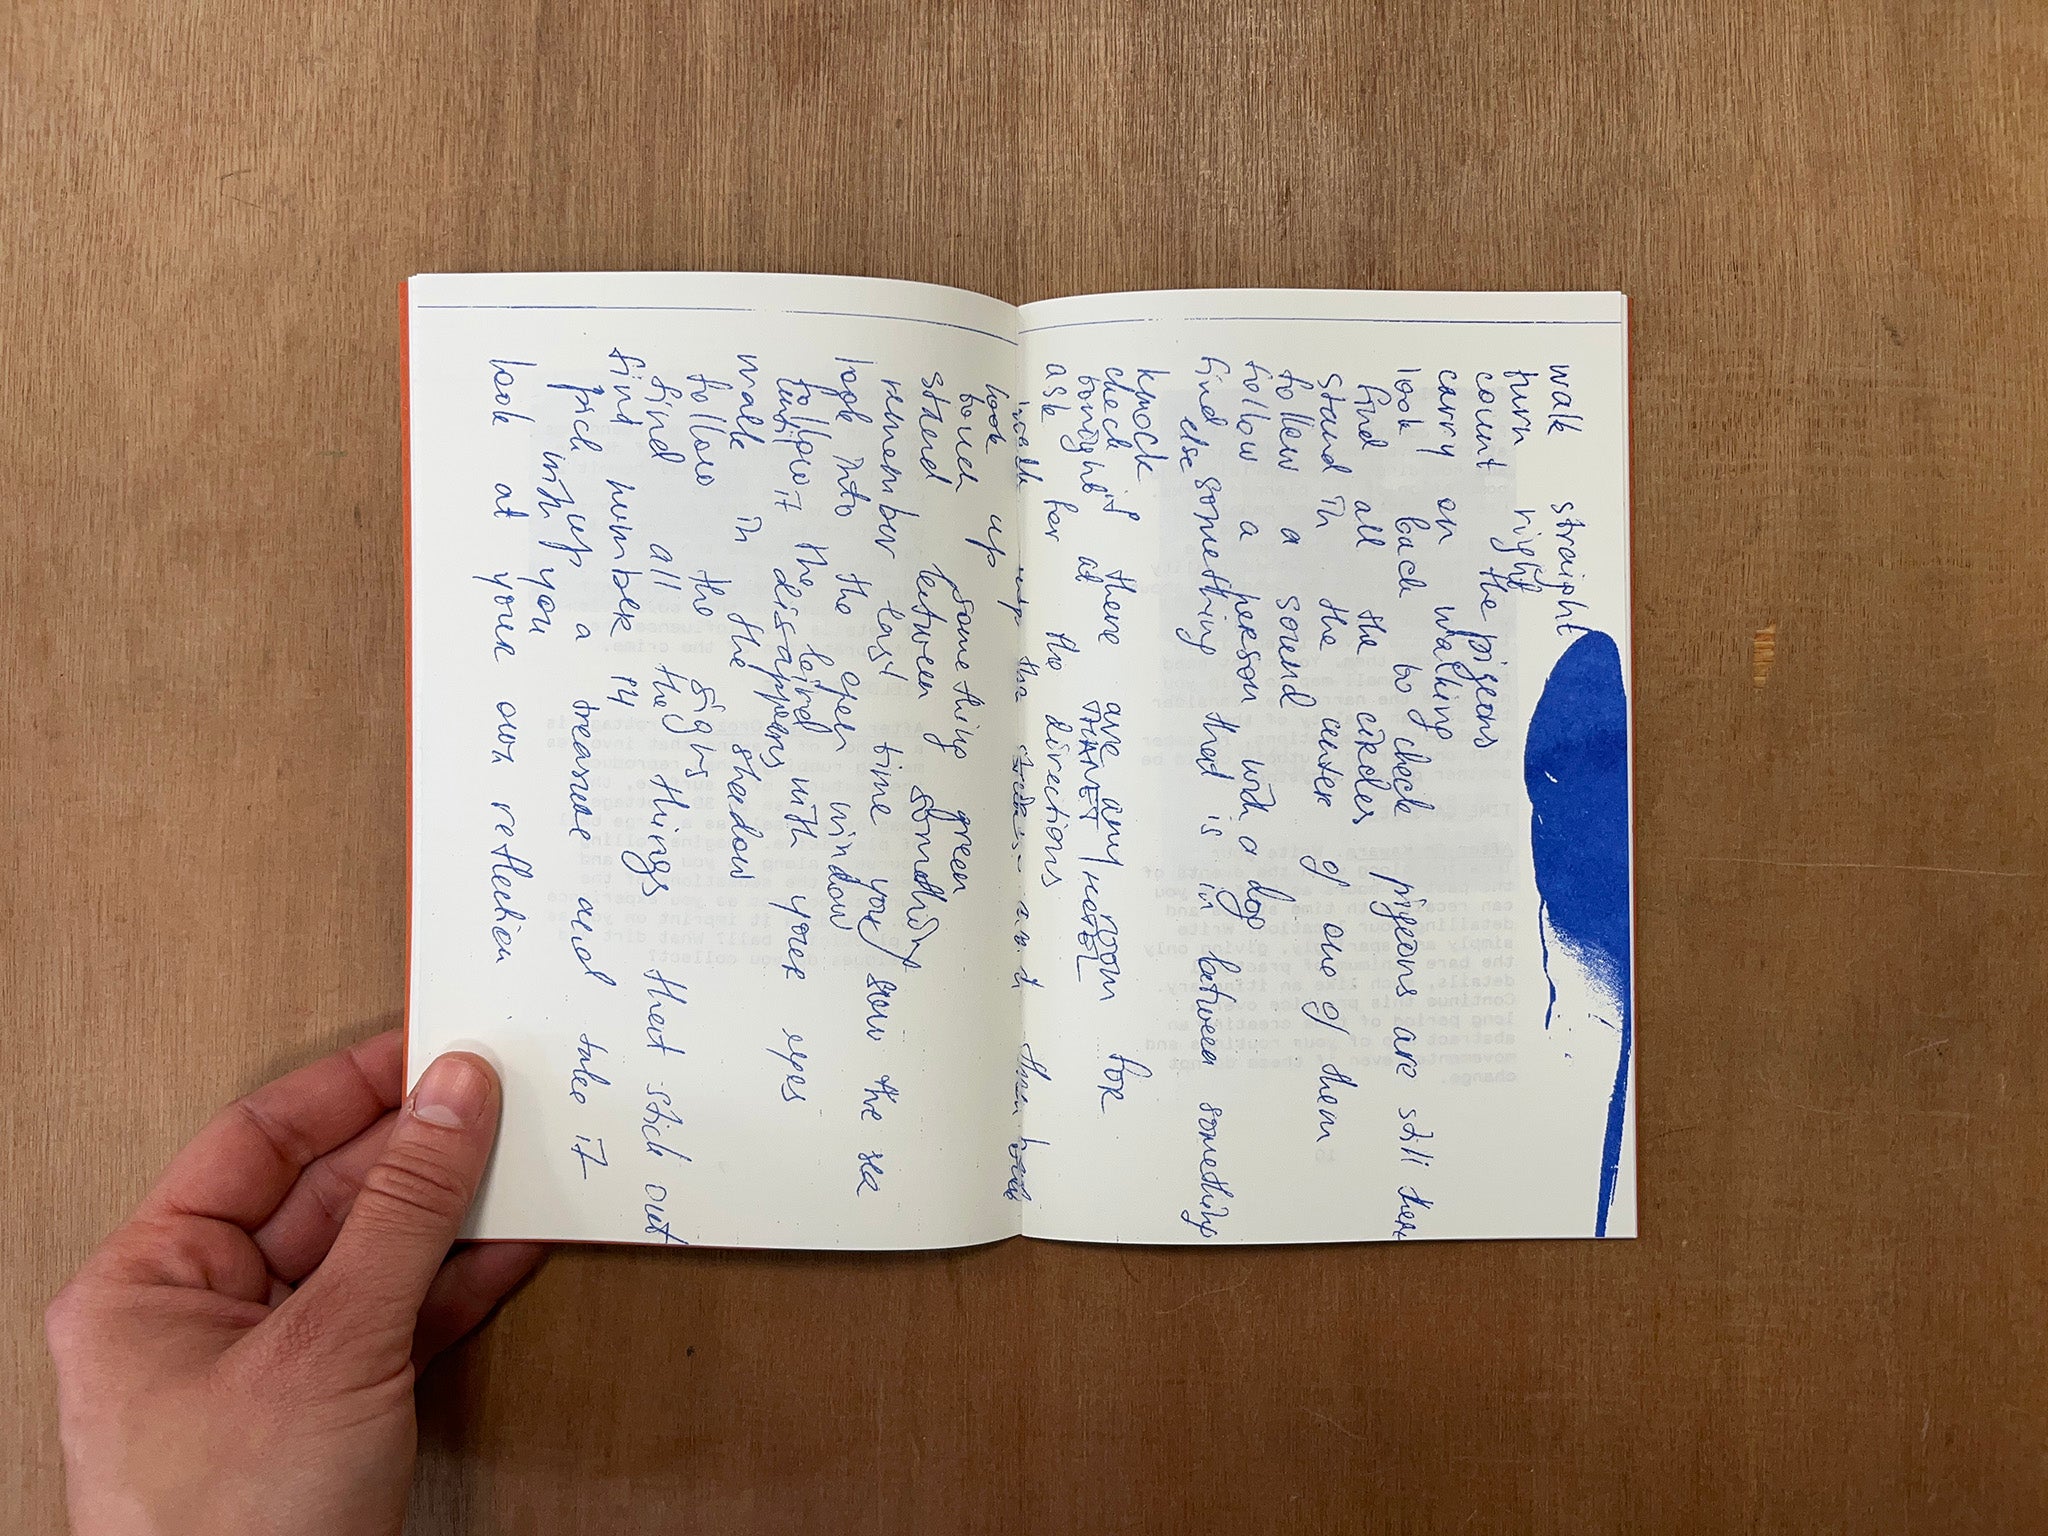 walk straight
turn right
count the pigeons
carry on walking
look back to check pigeons are still there
find all the circles
stand in the center of one of them
follow a sound
follow a person with a dog
find something that is in between something
else
knock
check if there are any room for
tonight at HOTEL
ask for the directions
look up
touch something green
stand between something
remember last time you saw the sea
look into the open window
follow the laind with your eyes
until it disappears
walk in the shadow
follow the signs
find all the things that stick out
find number 14
pick up a treasure and take it
with you
look at your own reflection